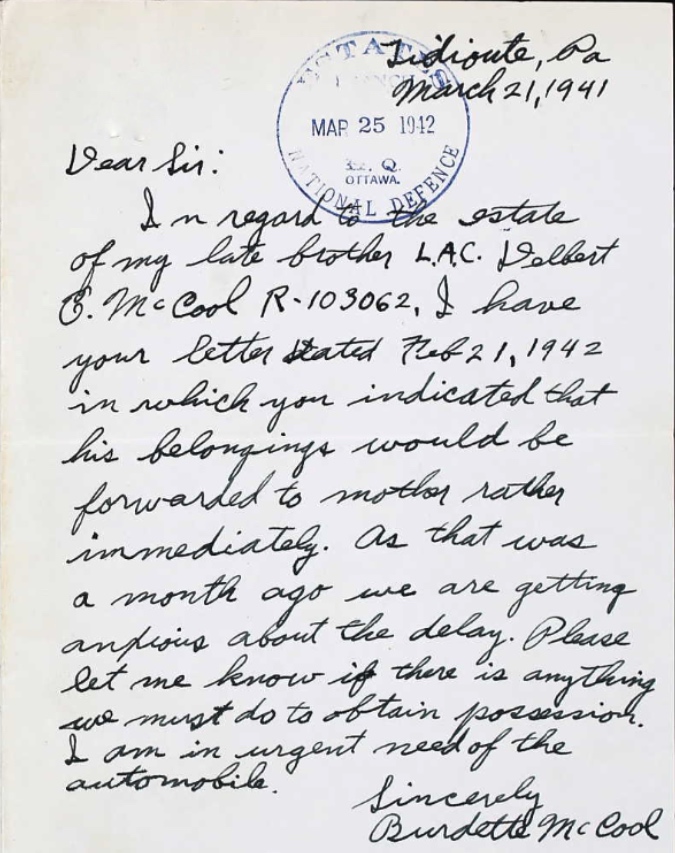 Tidioute, Pa
March 21, 1941
ESTATES
BRANCH
MAR 25 1942
H. Q.
OTTAWA.
NATIONAL DEFENCE
Dear Sir:
In regard to the estate
of my late brother L.A.C. Delbert
E. McCool R-103062, I have
your letter dated Feb 21, 1942
in which you indicated that
his belongings would be
forwarded to mother rather
immediately. As that was
a month ago we are getting
anxious about the delay. Please
let me know if there is anything
we must do to obtain possession.
I am in urgent need of the
automobile.
Sincerely
Burdette McCool